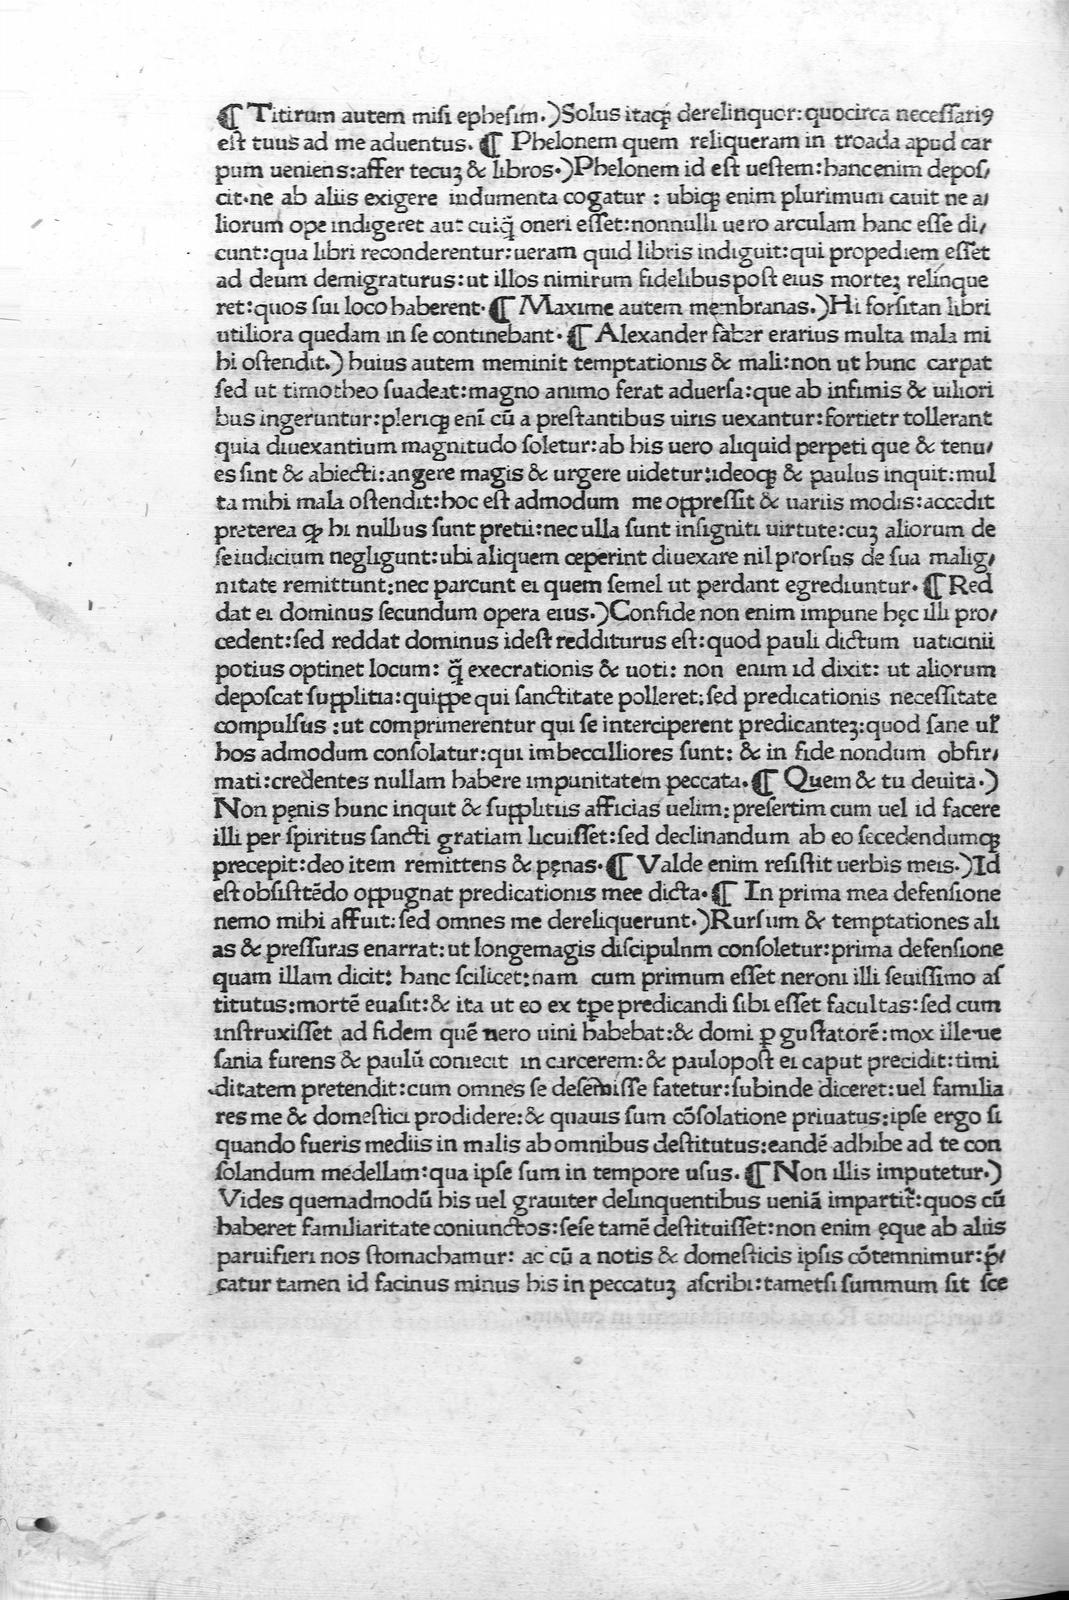 ¶ Titirum autem misi ephesim.)Solus itaqꝫ derelinquor:quocirca necessariꝰ
est tuus ad me aduentus. ¶ Phelonem quem reliqueram in troada apud car
pum ueniens:affer tecuꝫ & libros.)Phelonem id est uestem:hanc enim depos/
cit.ne ab aliis exigere indumenta cogatur : ubiqꝫ enim plurimum cauit ne a/
liorum ope indigeret aut cuiq̃ oneri esset:nonnulli uero arculam hanc esse di/
cunt:qua libri reconderentur:ueram quid libris indiguit:qui propediem esset
ad deum demigraturus:ut illos nimirum fidelibus post eius morteꝫ relinque
ret:quos sui loco haberent.¶ Maxime autem membranas.)Hi forsitan libri
utiliora quedam in se continebant.¶ Alexander faber erarius multa mala mi
hi ostendit.) huius autem meminit temptationis & mali:non ut hunc carpat
sed ut timotheo suadeat:magno animo ferat aduersa:que ab infimis & uiliori
bus ingeruntur:pleriqꝫ eni᷒ cū a prestantibus uiris uexantur:fortietr tollerant
quia diuexantium magnitudo soletur:ab his uero aliquid perpeti que & tenu/
es sint & abiecti:angere magis & urgere uidetur:ideoqꝫ & paulus inquit:mul
ta mihi mala ostendit:hoc est admodum me oppressit & uariis modis:accedit
preterea ꝙ hi nullius sunt pretii:nec ulla sunt insigniti uirtute:cuꝫ aliorum de
se iudicium negligunt:ubi aliquem ceperint diuexare nil prorsus de sua malig/
nitate remittunt:nec parcunt ei quem semel ut perdant egrediuntur.¶ Red
dat ei dominus secundum opera eius.)Confide non enim impune hęc illi pro/
cedent:sed reddat dominus idest redditurus est:quod pauli dictum uaticinii
potius optinet locum: q̃ execrationis & uoti: non enim id dixit: ut aliorum
deposcat supplitia:quippe qui sanctitate polleret:sed predicationis necessitate
compulsus :ut comprimerentur qui se interciperent predicanteꝫ:quod sane ul̃
hos admodum consolatur:qui imbecilliores sunt: & in fide nondum obfir/
mati:credentes nullam habere impunitatem peccata.¶ Quem & tu deuita.)
Non pęnis hunc inquit & supplitiis afficias uelim:presertim cum uel id facere
illi per spiritus sancti gratiam licuisset:sed declinandum ab eo secedendumqꝫ
precepit:deo item remittens & pęnas.¶ Valde enim resistit uerbis meis.)Id
est obsistēdo oppugnat predicationis mee dicta.¶ In prima mea defensione
nemo mihi affuit:sed omnes me dereliquerunt.)Rursum & temptationes ali
as & pressuras enarrat:ut longemagis discipulnm consoletur:prima defensione
quam illam dicit: hanc scilicet:nam cum primum esset neroni illi seuissimo as
titutus:mortē euasit:& ita ut eo ex tp̄e predicandi sibi esset facultas:sed cum
instruxisset ad fidem quē nero uini habebat:& domi ꝓ gustatorē:mox ille ue
sania furens & paulū coniecit in carcerem:& paulopost ei caput precidit:timi
ditatem pretendit:cum omnes se deseruisse fatetur:subinde diceret:uel familia
res me & domestici prodidere:& quauis sum cōsolatione priuatus:ipse ergo si
quando fueris mediis in malis ab omnibus destitutus:eandē adhibe ad te con
solandum medellam:qua ipse sum in tempore usus. ¶ Non illis imputetur.)
Vides quemadmodū his uel grauiter delinquentibus ueniā impartit̃:quos cū
haberet familiaritate coniunctos:sese tamē destituisset:non enim ęque ab aliis
paruifieri nos stomachamur: ac cū a notis & domesticis ipsis cōtemnimur:p̄/
catur tamen id facinus minus his in peccatuꝫ ascribi:tametsi summum sit sce